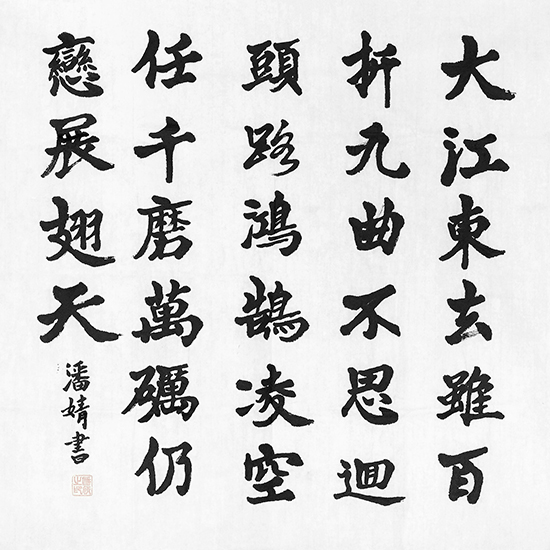 大江東去雖百
折九曲不思迴
頭路鴻鵠凌空
任千磨萬礪仍
戀展翅天
潘婧書